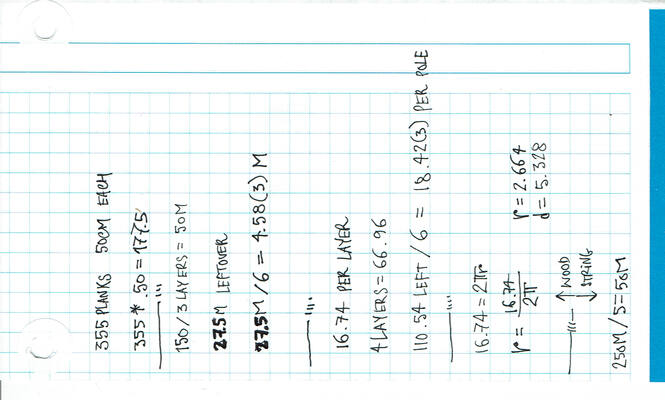 355 PLANKS 50CM EACH
355 * .50 = 177.5
150/3 LAYERS = 50M
27.5M LEFTOVER
27.5M/6 = 4.58(3) M
16.74 PER LAYER
4 LAYERS = 66.96
110.54 LEFT/6 = 18.42(3) PER POLE
16.74 = 2πr
r = 16.74/2π r = 2.664
d = 5.328
↑ WOOD
↓ STRING
250M/5 = 50M